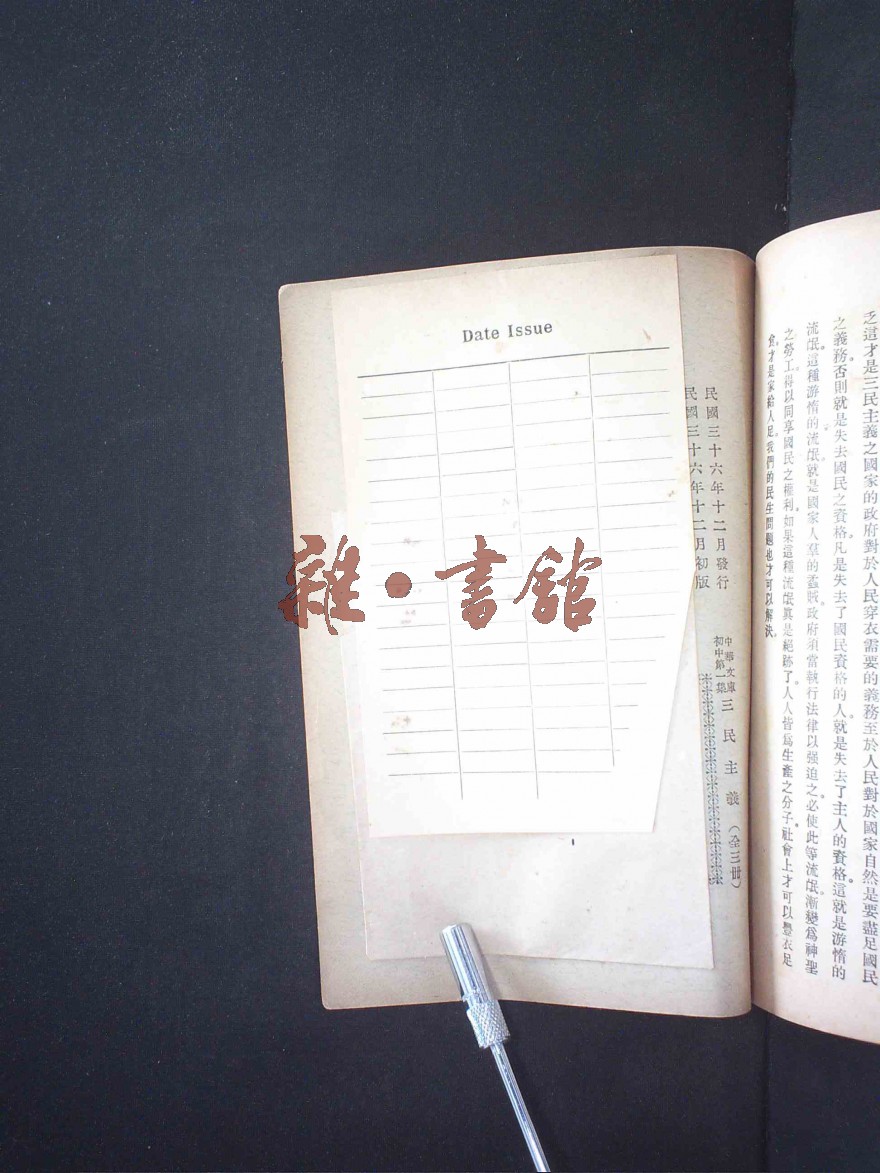 乏這才是三民主義之國家的政府對於人民穿衣需要的義務至於人民對於國家自然是要盡足國民
之義務。否則就是失去國民之資格凡是失去了國民資格的人。就是失去了主人的資格。這就是游惰的
流氓。這種游惰的流氓。就是國家人羣的蟊賊。政府須當執行法律以强迫之。必使此等流氓漸變爲神聖
之勞工得以同享國民之權利。如果這種流氓眞是絕跡了。人人皆爲生產之分子。社會上才可以豐衣足
食。才是家給人足。我們的民生問題也才可以解決。
民國三十六年十二月發行
民國三十六年十二月初版
中華文庫
初中第一集
三民主義（全三册）
Date Issue
雜·書館